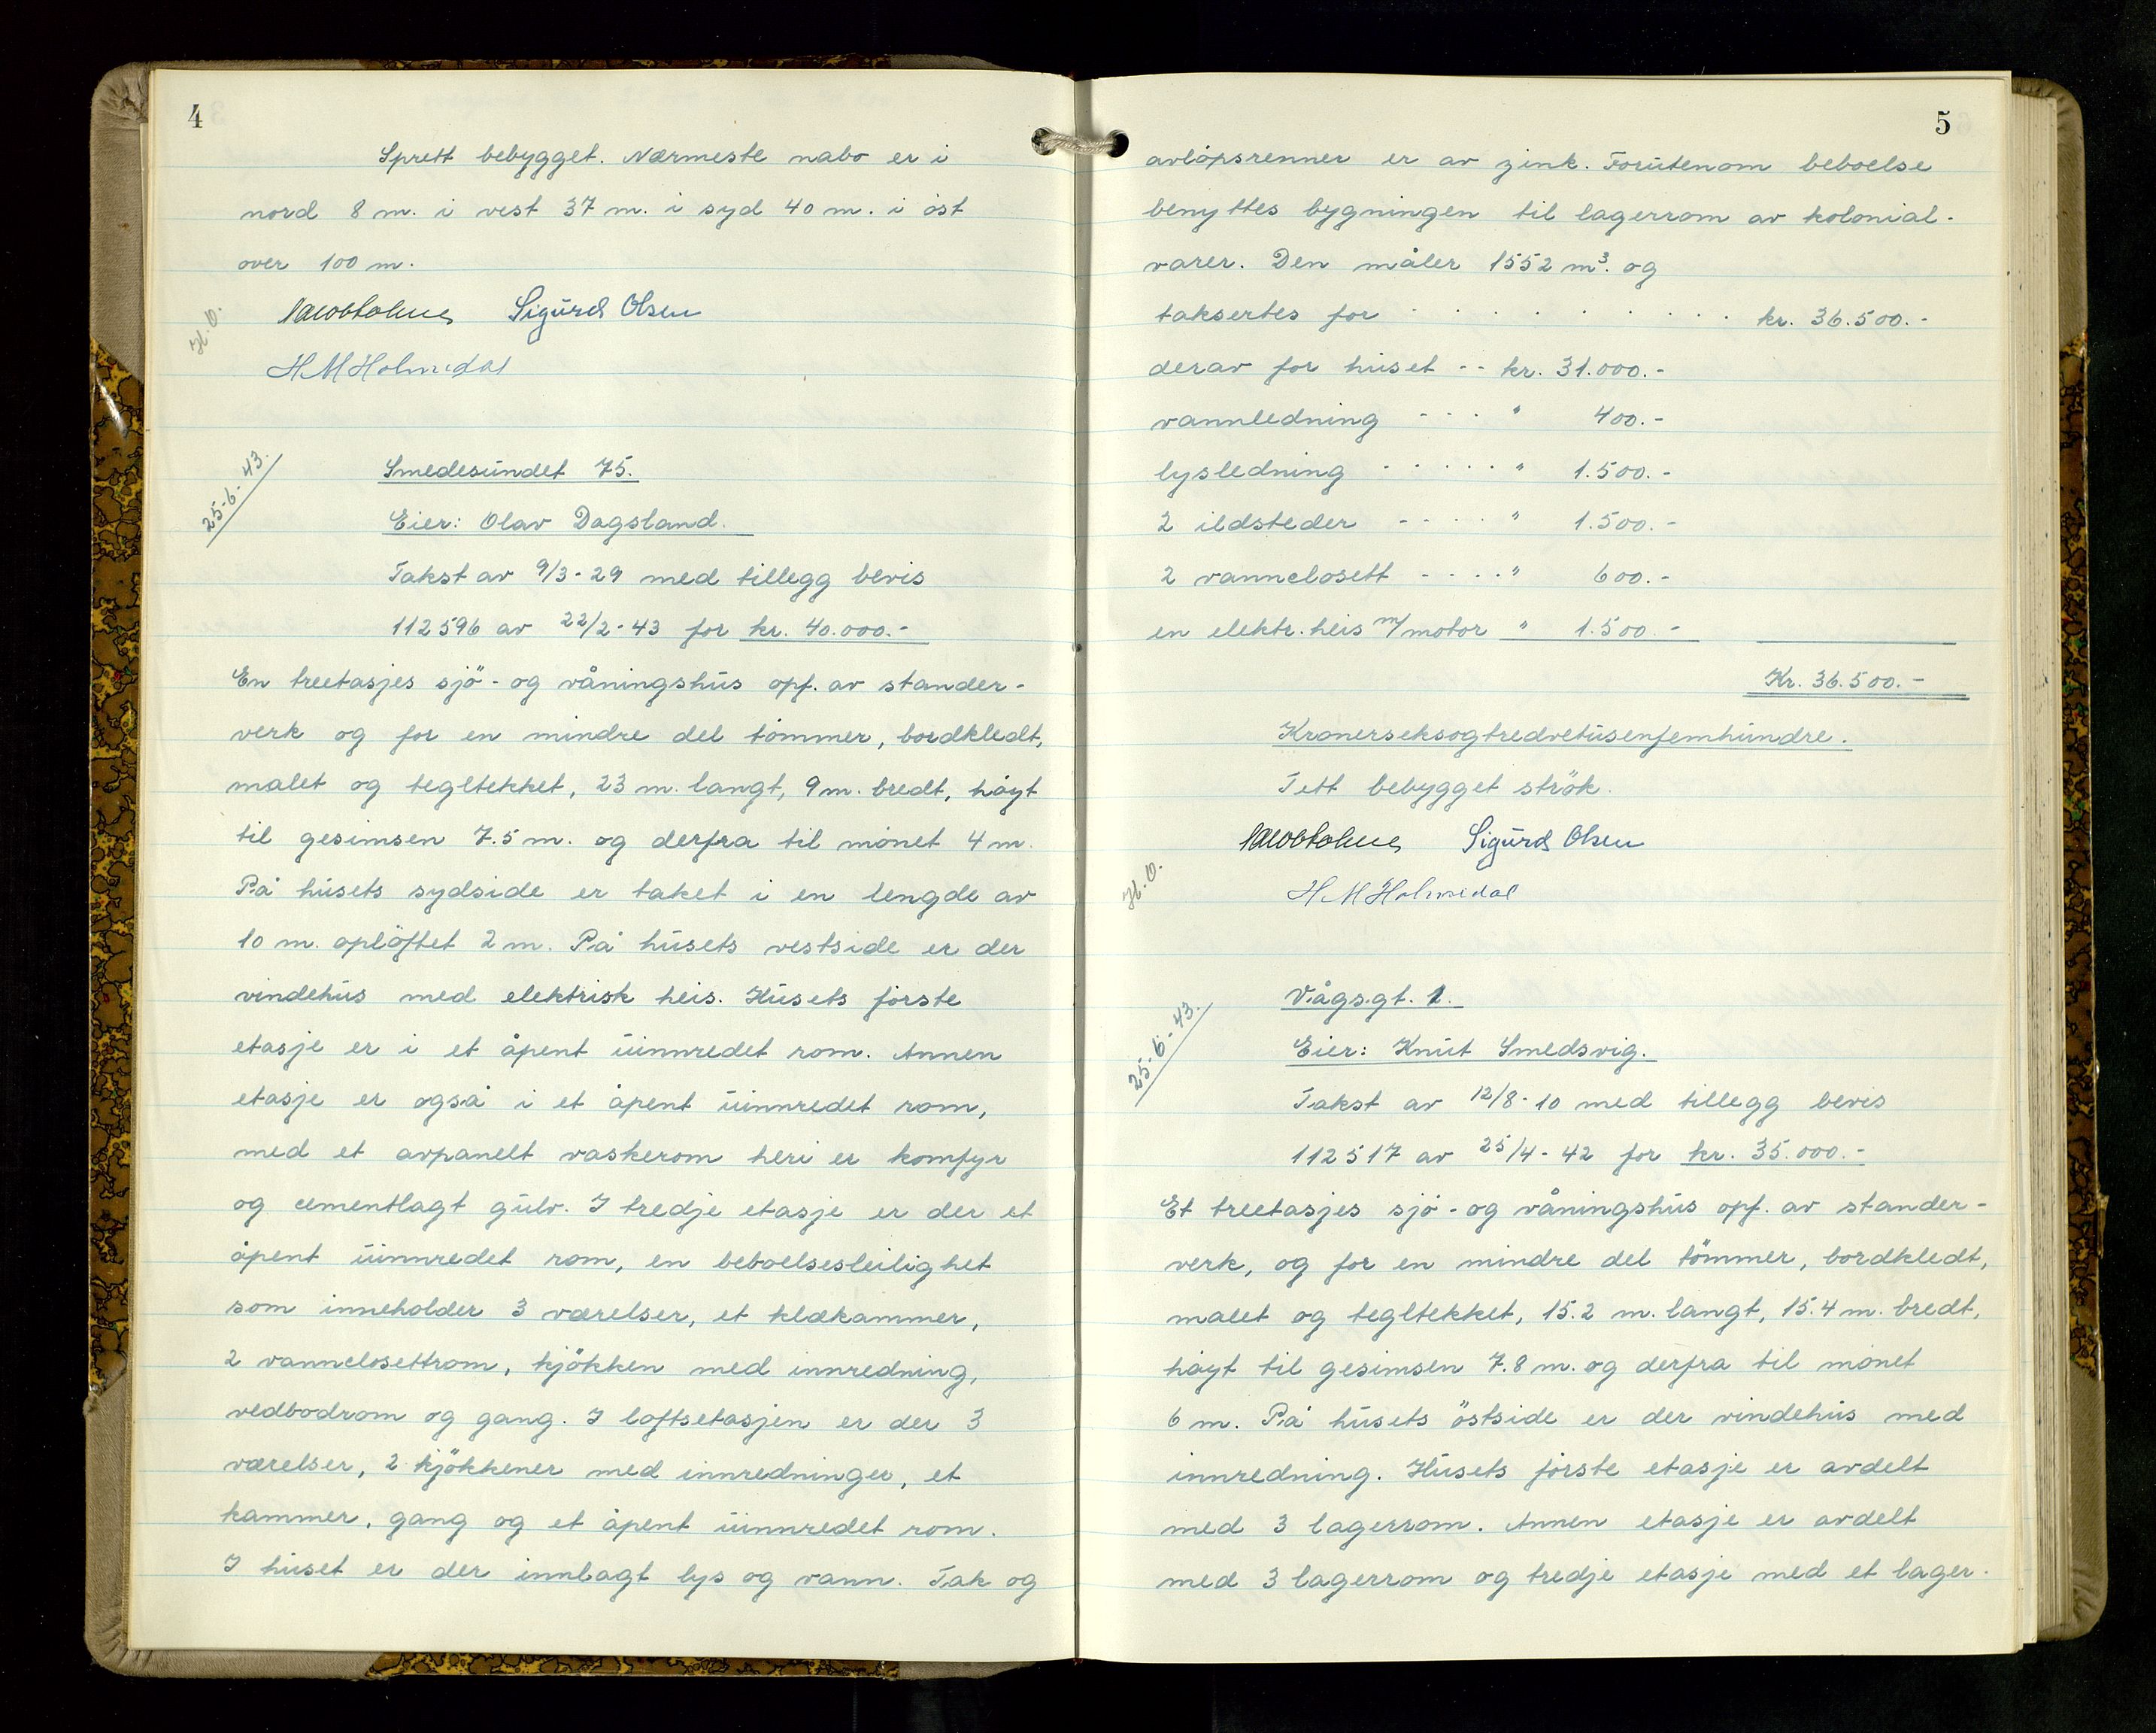 4
Sprett bebygget. Nærmeste nabo er i
nord 8 m. i vest 37 m. i syd 40 m. i øst
over 100 m.
H.O.
Sigurd Olsen
H M Holmedal
25-6-43.
Smedesundet 75.
Eier: Olav Dagsland.
Takst av 9/3-29 med tillegg bevis
112596 av 22/2-43 for kr. 40.000.-
En treetasjes sjö- og våningshus opf. av stander-
verk og for en mindre del tömmer, bordkledt,
malet og tegltekket, 23 m. langt, 9 m. bredt, höyt
til gesimsen 7.5 m. og derfra til mönet 4 m.
På husets sydside er taket i en lengde av
10 m. oplöftet 2 m. På husets vestside er der
vindehus med elektrisk heis. Husets förste
etasje er i et åpent uinnredet rom. Annen
etasje er også i et åpent uinnredet rom,
med et avpanelt vaskerom heri er komfyr
og cementlagt gulv. I tredje etasje er der et
åpent uinnredet rom, en beboelsesleilighet
som inneholder 3 værelser, et klækammer,
2 vannclosettrom, kjökken med innredning,
vedbodrom og gang. I loftsetasjen er der 3
værelser, 2 kjökkener med innredninger, et
kammer, gang og et åpent uinnredet rom.
I huset er der innlagt lys og vann. Tak og
5
avlöpsrenner er av zink. Forutenom beboelse
benyttes bygningen til lagerrom av kolonial-
varer. Den måler 1552 m³. og
taksertes for . . . . . . . . . kr. 36.500.-
derav for huset -- kr. 31.000.-
vannledning - - - " 400.-
lysledning - - - - - " 1.500.-
2 ildsteder - - - - " 1.500.-
2 vannclosett - - - - " 600.-
en elektr. heis m/motor " 1.500.-
Kr. 36.500.-
Kronerseksogtredvetusenfemhundre.
Tett bebygget strök.
Sigurd Olsen
H.O.
H M Holmedal
25-6-43.
Vågsgt. 1.
Eier: Knut Smedsvig.
Takst av 12/8-10 med tillegg bevis
112517 av 25/4-42 for kr. 35.000.-
Et treetasjes sjö- og våningshus opf. av stander-
verk, og for en mindre del tömmer, bordkledt,
malet og tegltekket, 15.2 m. langt, 15.4 m. bredt,
höyt til gesimsen 7.8 m. og derfra til mönet
6 m. På husets östside er der vindehus med
innredning. Husets förste etasje er avdelt
med 3 lagerrom. Annen etasje er avdelt
med 3 lagerrom og tredje etasje med et lager-